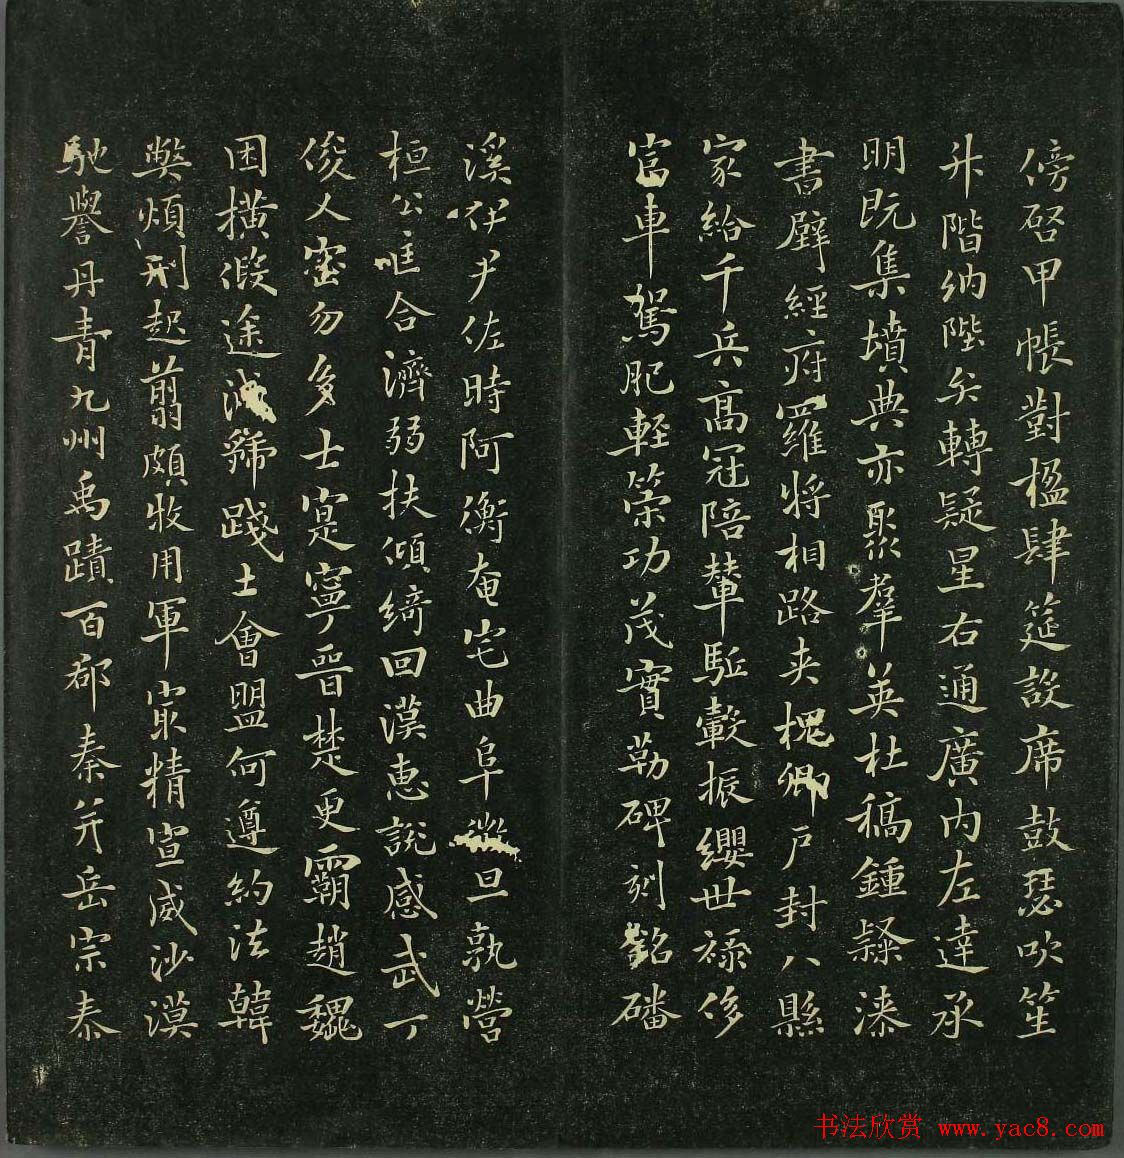 傍啓甲帳對楹肆筵設席鼓瑟吹笙
升階納陛弁轉疑星右通廣內左達承
明既集墳典亦聚羣英杜稿鍾隸漆
書壁經府羅將相路夾槐卿戶封八縣
家給千兵高冠陪輦駈轂振纓世祿侈
富車駕肥輕策功茂實勒碑刻銘磻
溪伊尹佐時阿衡奄宅曲阜微旦孰營
桓公匡合濟弱扶傾綺回漢惠說感武丁
俊乂密勿多士寔寧晉楚更霸趙魏
困橫假途滅虢踐土會盟何遵約法韓
弊煩刑起翦頗牧用軍最精宣威沙漠
馳譽丹青九州禹蹟百郡秦并岳宗泰
书法欣赏 www.yac8.com